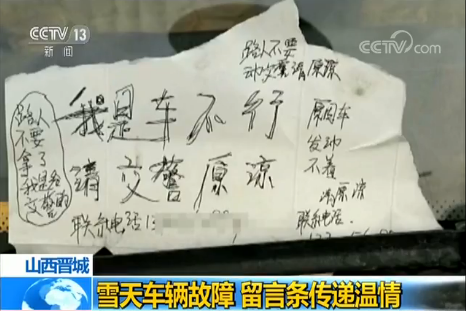 CCTV 13
新闻
CCTV.com
路人不要
动 交警请原谅
我是车不行
请交警原谅
路人
不要
拿了
我是给
交警的
周围车
发动
不着
请原谅
联系电话
联系电话13
山西晋城
雪天车辆故障 留言条传递温情